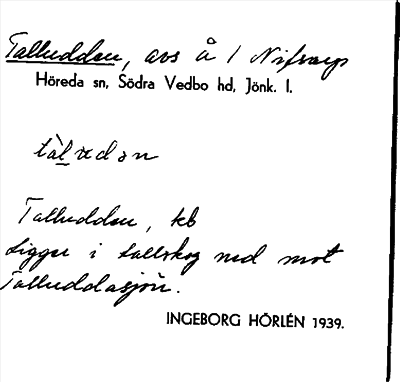 Talludden, avs å / Nifsarp
Höreda sn, Södra Vedbo hd, Jönk. l.
Talludden, kb
Ligger i tallskog ned mot
Talluddasjön.
INGEBORG HÖRLÉN 1939.